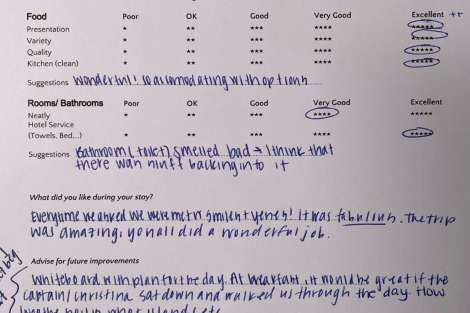 Food Poor OK Good Very Good Excellent ++
Presentation * ** *** **** *****
Variety * ** *** **** *****
Quality * ** *** **** *****
Kitchen (clean) * ** *** **** *****
Suggestions Wonderful! So accomodating with options
Rooms/ Bathrooms Poor OK Good Very Good Excellent
Neatly * ** *** **** *****
Hotel Service
(Towels, Bed...) * ** *** **** *****
Suggestions Bathroom (toilet) smelled bad → I think that
there was stuff backing into it
What did you like during your stay?
Everytime we asked we were met w/ smiles & yeses! It was fabulous. The trip
was amazing, yo nall did a wonderful job.
Advise for future improvements
Whiteboard with plan for the day. At breakfast, it would be great if the
captain/christina sat down and walked us through the day. How